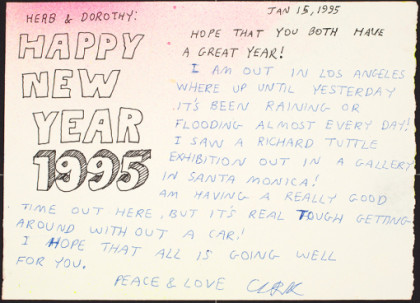 HERB & DOROTHY:
JAN 15, 1995
HAPPY
NEW
YEAR
1995
HOPE THAT YOU BOTH HAVE
A GREAT YEAR!
I AM OUT IN LOS ANGELES
WHERE UP UNTIL YESTERDAY
IT'S BEEN RAINING OR
FLOODING ALMOST EVERY DAY!
I SAW A RICHARD TUTTLE
EXHIBITION OUT IN A GALLERY
IN SANTA MONICA!
AM HAVING A REALLY GOOD
TIME OUT HERE, BUT IT'S REAL TOUGH GETTING
AROUND WITH OUT A CAR!
I HOPE THAT ALL IS GOING WELL
FOR YOU.
PEACE & LOVE